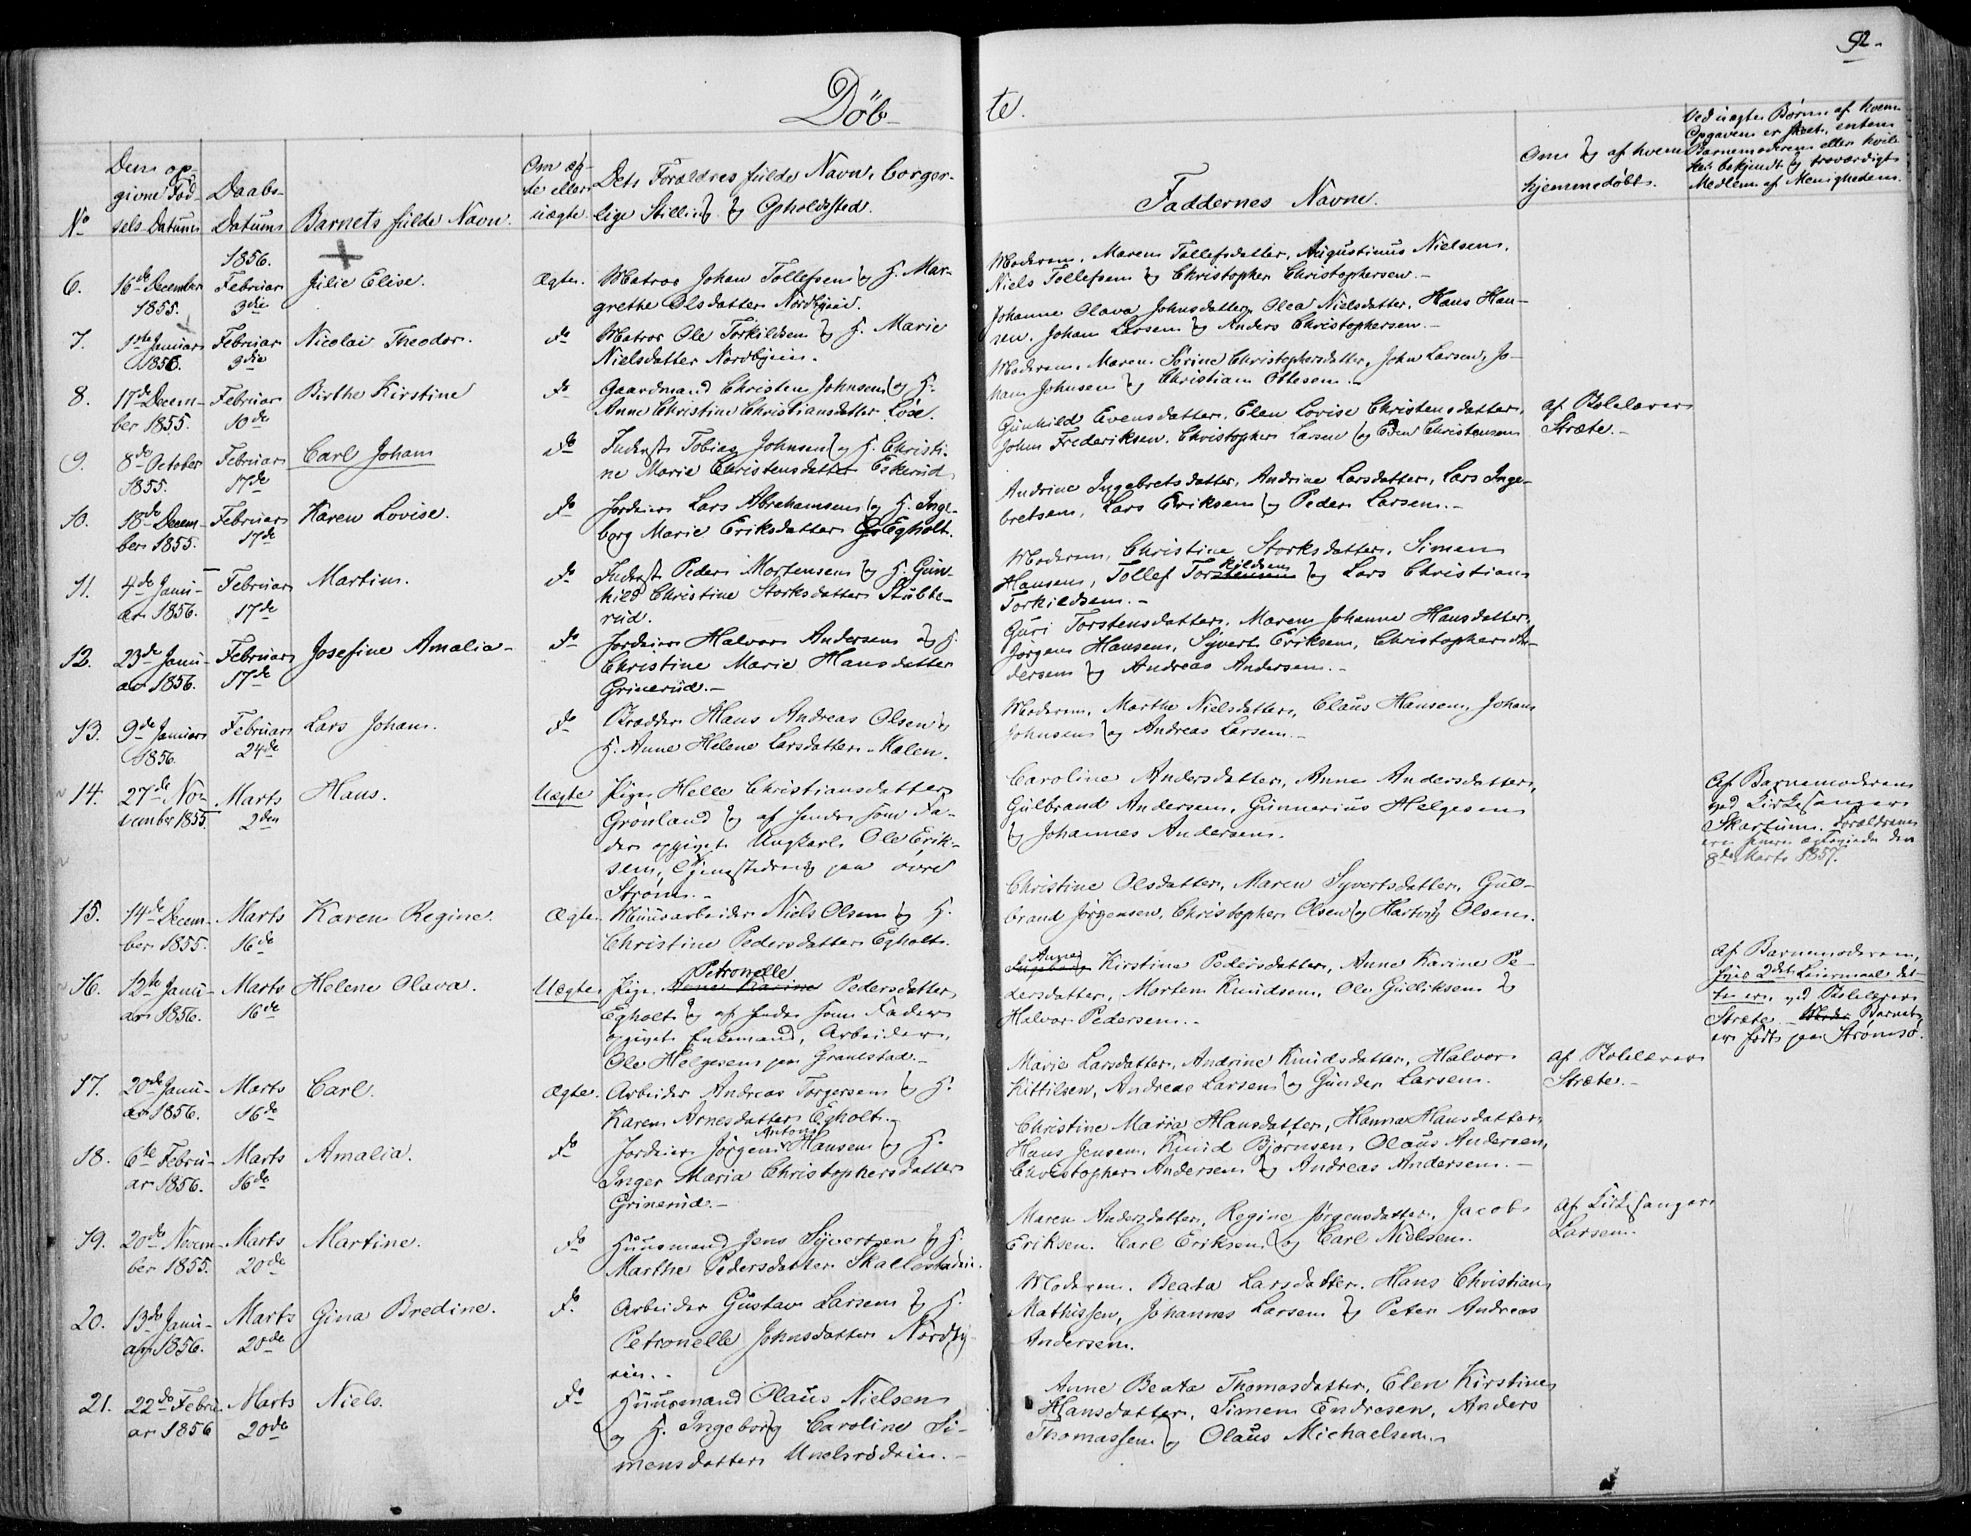 92.
Döb-
te.
No
Den op-
givne Fød
sels Datum
Daabs-
Datum
Barnets fulde Navn.
Om æg-
te eller
uægte.
Dets Forældres fulde Navn, borger-
lige Stilling og Opholdssted.
Faddernes Navne.
Om og af hvem
hjemmedøbt.
Ved uægte Børn af hvem
Opgaven er skeet, enten
Barnemoderen eller hvil-
bekjendt og troværdigt
Medlem af Menigheden.
6.
16de December
1855.
1856.
Februar
3die
Julie Elise.
Ægte.
Matros Johan Tollefsen og H. Mar-
grethe Olsdatter Nordbyeie.
Moderen, Maren Tollefsdatter, Augustinus Nielsen,
Niels Tollefsen og Christopher Christophersen.-
7.
1ste Januar
1856.
Februar
3die
Nicolai Theodor.
do
Matros Ole Torkildsen og H. Marie
Nielsdatter Nordbyeie.
Johanne Olava Johnsdatter, Olea Nielsdatter, Hans Han-
sen, Johan Larsen og Anders Christophersen.-
8.
17de Decem-
ber 1855.
Februar
10de
Birthe Kirstine
do
Gaardmand Christen Johnsen og H.
Anne Christine Christiansdatter Löse.
Moderen, Maren Sörine Christophersdatter, John Larsen, Jo-
han Johnsen og Christian Ottesen.-
9.
8de October
1855.
Februar
17de
Carl Johan
do
Inderst Tobias Johnsen og H. Christi-
ne Marie Christensdatter Eskerud
Gunhild Evensdatter, Elen Lovise Christensdatter,
John Frederiksen, Christopher Larsen og Even Christensen
af Skolelærer
Stræte.-
10.
18de Decem-
ber 1855.
Februar
17de
Karen Lovise.
do
Jordeier Lars Abrahamsen og H. Inge-
borg Marie Eriksdatter Gr Egholt.
Andrine Ingebretsdatter, Andrine Larsdatter, Lars Inge-
bretsen, Lars Eriksen og Peder Larsen.-
11.
4de Janu-
ar 1856.
Februar
17de
Martin.
do
Inderst Peder Mortensen og H. Gun-
hild Christine Storksdatter Stubbe-
rud.
Moderen, Christine Storksdatter, Simen
Hansen, Tollef Torstensen kildsen og Lars Christian
Torkildsen.-
12.
23de Janu-
ar 1856.
Februar
17de
Josefine Amalia-
do
Jordeier Halvor Andersen og H.
Christine Marie Hansdatter
Grinerud.-
Guri Torstensdatter, Maren Johanne Hansdatter,
Jørgen Hansen, Syvert Eriksen, Christopher An-
dersen og Andreas Andersen.-
13.
9de Januar
1856.
Februar
24de
Lars Johan.
do
Brødder Hans Andreas Olsen og
H. Anne Helene Larsdatter Malen.
Moderen, Marthe Nielsdatter, Claus Hansen, Johan
Johnsen og Andreas Larsen.-
14.
27de No-
vember 1855
Marts
2den
Hans.
Uægte
Pige Helle Christiansdatter
Grönland og af hende som Fa-
der opgivet Ungkarl Ole Erik-
sen, Tjenestedreng paa övre
Ström.-
Caroline Andersdatter, Anne Andersdatter,
Gulbrand Andersen, Gunnerius Helgesen
og Johannes Andersen.
Af Barnemoderen
ved Kirkesanger
Skartum. Forældrene
ere senere ægteviede den
8de Marts 1857.
15.
14de Decem-
ber 1855.
Marts
16de
Karen Regine.
Ægte.
Muusarbeider Niels Olsen og H.
Christine Pedersdatter Egholt.
Christine Olsdatter, Maren Syvertsdatter, Gul-
brand Jørgensen, Christopher Olsen og Hartvig Olsen.
16.
12te Janu-
ar 1856.
Marts
16de
Helene Olava.
Uægte.
Petronelle
Pige Anne Karine Pedersdatter
Egholt og af hende som Fader
opgivet Enkemand, Arbeider,
Ole Helgesen paa Granlstad.-
Anne
Ingeborg Kirstine Pedersdatter, Anne Karine Pe-
dersdatter, Morten Knudsen, Ole Gulliksen og
Halvor Pedersen.-
af Barnemoderen,
hvis 2det Leiermaal det-
te er, ved Skolelærer
Stræte - Moder Barnet
er født paa Strømsø.
17.
20de Janu-
ar 1856.
Marts
16de
Carl.
Ægte.
Arbeider Andreas Torgersen og H.
Karen Arnesdatter Egholt.
Marie Larsdatter, Andrine Knudsdatter, Halvor
Kittilsen, Andreas Larsen og Gunder Larsen.
af Skolelærer
Stræte.-
18.
6te Febru-
ar 1856.
Marts
16de
Amalia.
do
Jordeier Jørgen Anton Hansen og H.
Inger Maria Christophersdatter
Grinerud.-
Christine Maria Hansdatter, Hanna Hansdatter,
Hans Jensen, Knud Bjørnsen, Olaus Andersen,
Christopher Andersen og Andreas Andersen.-
19.
20de Novem-
ber 1855.
Marts
20de
Martine.
do
Huusmand Jens Syvertsen og H.
Marthe Pedersdatter Skallestadeie.
Maren Andersdatter, Regine Jørgensdatter, Jacob
Eriksen. Carl Eriksen og Carl Nielsen.
Af Kirkesanger
Larsen.
20.
13de Janu-
ar 1856.
Marts
20de
Gina Bredine.
do
Arbeider Gustav Larsen og H.
Petronelle Johnsdatter Nordby-
eie.-
Moderen. Beata Larsdatter. Hans Christian
Mathissen, Johannes Larsen og Peter Andreas
Andersen.
21.
22de Febru-
ar 1856
Marts
20de
Niels.
do
Huusmand Olaus Nielsen
og H. Ingeborg Caroline Si-
mensdatter Unelsrødeie.-
Anne Beata Thomasdatter, Elen Kirstine
Hansdatter, Simen Endresen, Anders
Thomassen og Olaus Michaelsen.